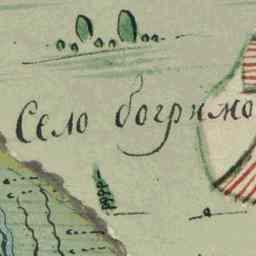 Село богримо